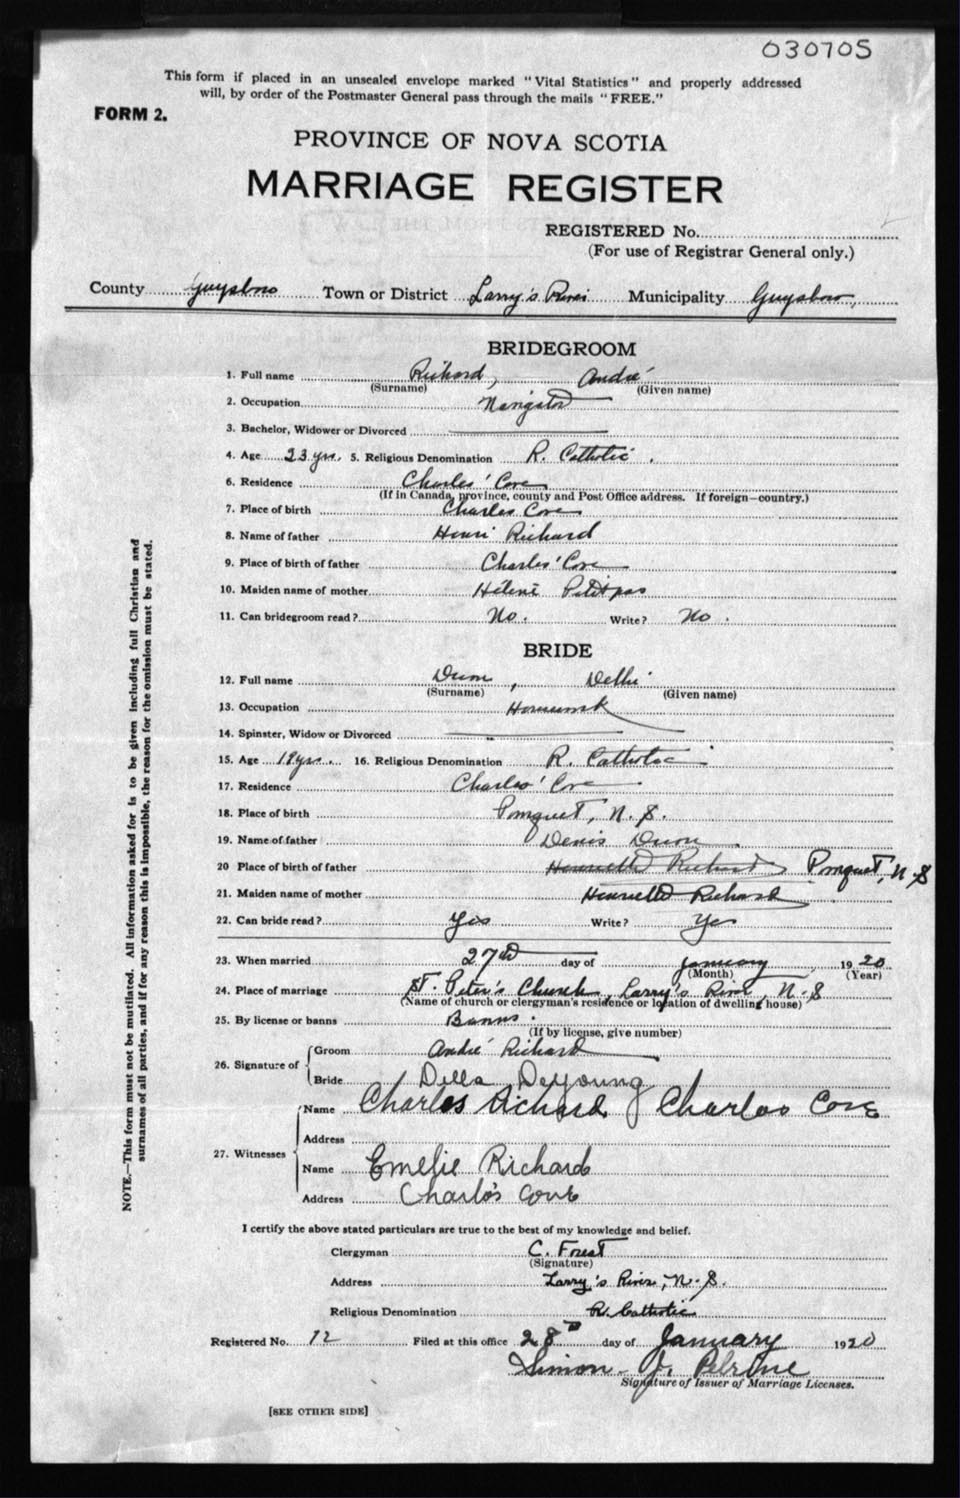 030705
This form if placed in an unsealed envelope marked "Vital Statistics" and properly addressed
will, by order of the Postmaster General pass through the mails "FREE."
FORM 2.
PROVINCE OF NOVA SCOTIA
MARRIAGE REGISTER
REGISTERED No.
(For use of Registrar General only.)
County Guysboro Town or District Larry's River Municipality Guysboro,
BRIDEGROOM
1. Full name Richard, André
(Surname) (Given name)
2. Occupation Navigator
3. Bachelor, Widower or Divorced
4. Age 23 yrs. 5. Religious Denomination R. Catholic.
6. Residence Charles' Cove
(If in Canada, province, county and Post Office address. If foreign—country.)
7. Place of birth Charles Cove
8. Name of father Henri Richard
9. Place of birth of father Charles' Cove
10. Maiden name of mother Hélène Petitpas
11. Can bridegroom read? No. Write? No.
BRIDE
12. Full name , Delhi
(Surname) (Given name)
13. Occupation
14. Spinster, Widow or Divorced
15. Age 19 yrs. 16. Religious Denomination R. Catholic
17. Residence Charles' Cove
18. Place of birth Pomquet, N. S.
19. Name of father Denis
20 Place of birth of father Henrietta Richard Pomquet, N. S
21. Maiden name of mother Henrietta Richard
22. Can bride read? Yes Write? Yes
23. When married 27th day of January 1920
(Month) (Year)
24. Place of marriage St. Peter's Church, Larry's River, N. S
(Name of church or clergyman's residence or location of dwelling house)
25. By license or banns Banns.
(If by license, give number)
26. Signature of
Groom André Richard
Bride Della DeYoung
27. Witnesses
Name Charles Richard Charlos Cove
Address
Name Emelie Richard
Address Charlo's Cove
I certify the above stated particulars are true to the best of my knowledge and belief.
Clergyman C. Forest
(Signature)
Address Larry's River, N. S.
Religious Denomination R. Catholic
Registered No. 12 Filed at this office 28th day of January 1920
Simon J. Pelrine
Signature of Issuer of Marriage Licenses.
[SEE OTHER SIDE]
NOTE.—This form must not be mutilated. All information asked for is to be given including full Christian and
surnames of all parties, and if for any reason this is impossible, the reason for the omission must be stated.